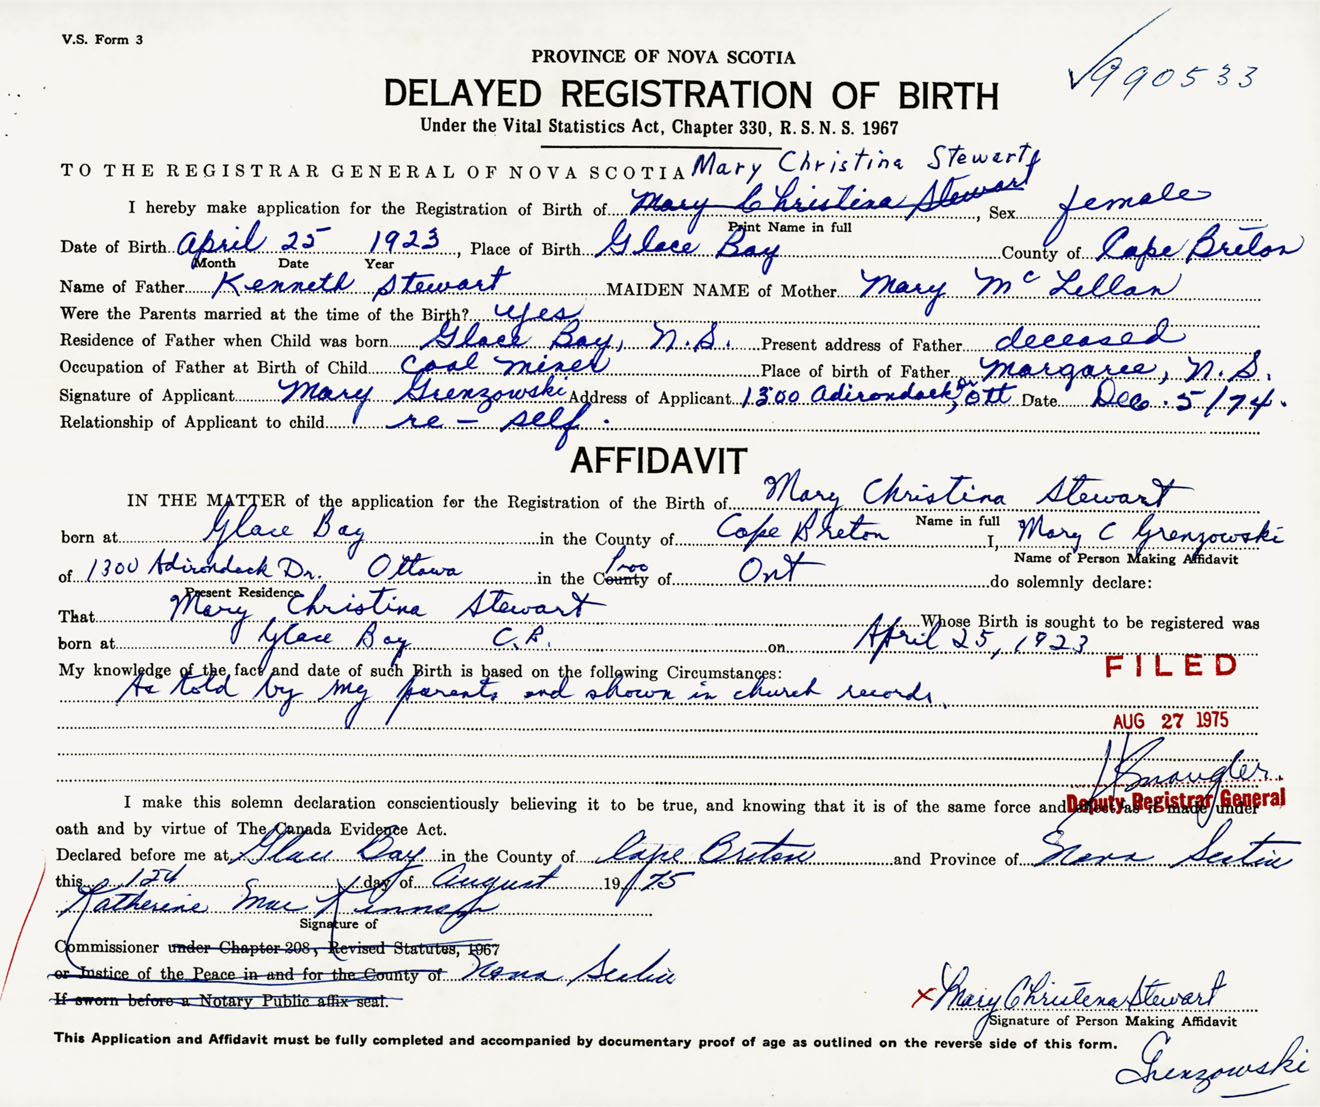 V.S. Form 3
990533
PROVINCE OF NOVA SCOTIA
DELAYED REGISTRATION OF BIRTH
Under the Vital Statistics Act, Chapter 330, R. S. N. S. 1967
TO THE REGISTRAR GENERAL OF NOVA SCOTIA Mary Christina Stewart
I hereby make application for the Registration of Birth of Mary Christina Stewart, Sex female
Print Name in full
Date of Birth April 25 1923, Place of Birth Glace Bay County of Cape Breton
Month Date Year
Name of Father Kenneth Stewart MAIDEN NAME of Mother Mary McLellan
Were the Parents married at the time of the Birth? yes
Residence of Father when Child was born Glace Bay, N.S. Present address of Father deceased
Occupation of Father at Birth of Child Coal miner Place of birth of Father Margaree, N.S.
Signature of Applicant Mary Grenzowski Address of Applicant 1300 Adirondack Dr, Ott Date Dec. 5/74.
Relationship of Applicant to child re - self.
AFFIDAVIT
IN THE MATTER of the application for the Registration of the Birth of Mary Christina Stewart
Name in full
born at Glace Bay in the County of Cape Breton I, Mary C Grenzowski
Name of Person Making Affidavit
of 1300 Adirondack Dr. Ottawa in the County Prov of Ont do solemnly declare:
Present Residence
That Mary Christina Stewart Whose Birth is sought to be registered was
born at Glace Bay C.B. on April 25, 1923
My knowledge of the fact and date of such Birth is based on the following Circumstances:
As told by my parents and shown in church records.
FILED
AUG 27 1975
Deputy Registrar General
I make this solemn declaration conscientiously believing it to be true, and knowing that it is of the same force and effect as if made under
oath and by virtue of The Canada Evidence Act.
Declared before me at Glace Bay in the County of Cape Breton and Province of Nova Scotia
this 1st day of August 1975
Katherine MacKinnon
Signature of
Commissioner under Chapter 208, Revised Statutes, 1967
or Justice of the Peace in and for the County of Nova Scotia
If sworn before a Notary Public affix seal.
x Mary Christena Stewart
Signature of Person Making Affidavit
This Application and Affidavit must be fully completed and accompanied by documentary proof of age as outlined on the reverse side of this form.
Grenzowski